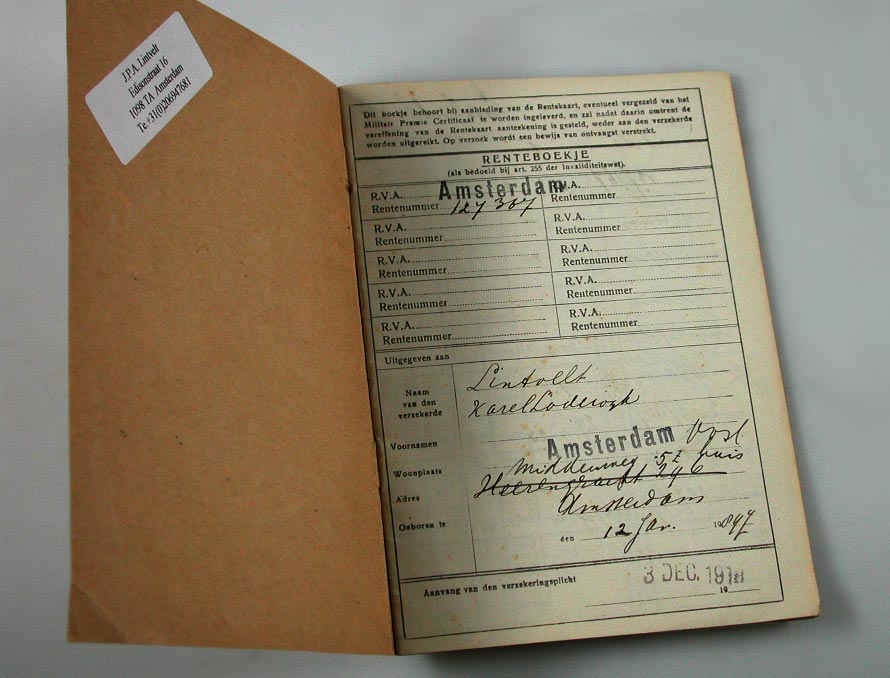 J.P.A. Lintvelt
Edisonstraat 16
1098 TA Amsterdam
Te +31(0)206947681
Dit boekje behoort bij aanbieding van de Rentekaart, eventueel vergezeld van het
Militair Premie Certificaat te worden ingeleverd, en zal nadat daarin omtrent de
vereffening van de Rentekaart aanteekening is gesteld, weder aan den verzekerde
worden uitgereikt. Op verzoek wordt een bewijs van ontvangst verstrekt.
RENTEBOEKJE
(als bedoeld bij art. 255 der Invaliditeitswet).
R.V.A. Amsterdam R.V.A.
Rentenummer 127 307 Rentenummer
R.V.A. R.V.A.
Rentenummer Rentenummer
R.V.A. R.V.A.
Rentenummer Rentenummer
R.V.A. R.V.A.
Rentenummer Rentenummer
R.V.A. R.V.A.
Rentenummer Rentenummer
Uitgegeven aan
Naam
van den
verzekerde
Lintvelt
Karel Lodewyk
Voornamen
Woonplaats Amsterdam Oost
Middenweg 52 huis
Adres Heerengracht 246
Geboren te Amsterdam
den 12 Jan. 1897
Aanvang van den verzekeringsplicht 3 DEC. 191
19